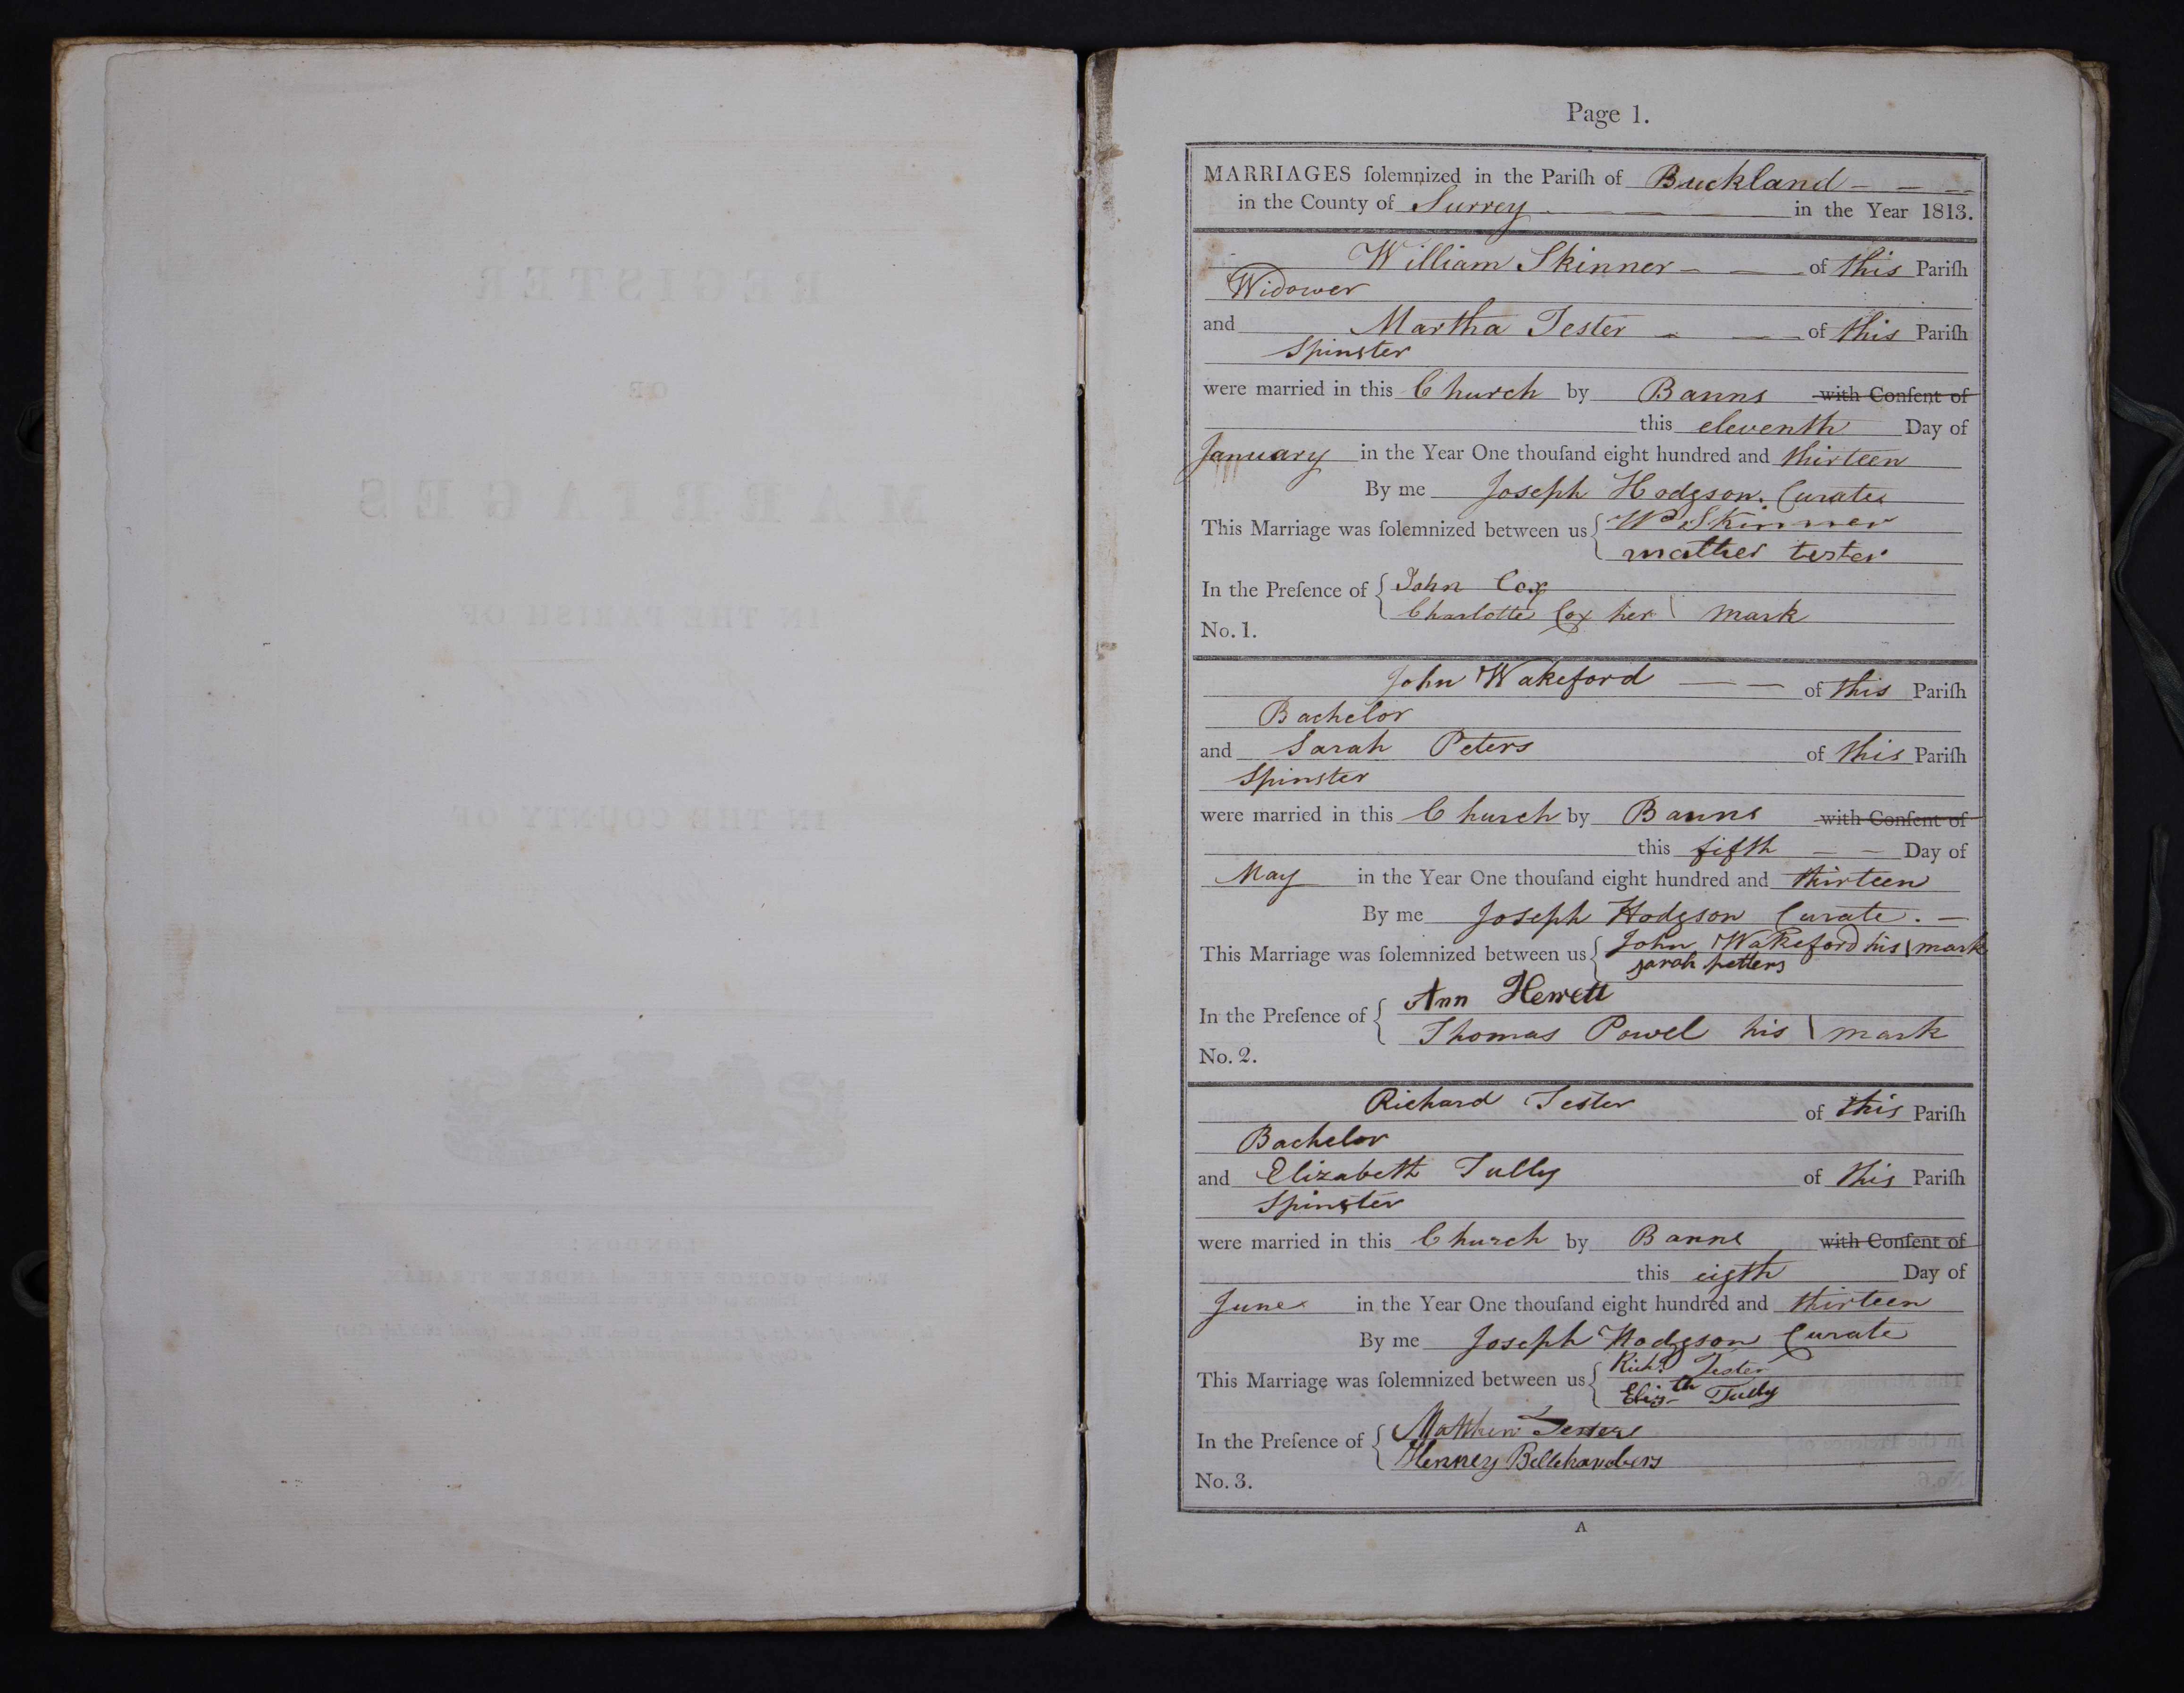 Page 1.
MARRIAGES ſolemnized in the Pariſh of Buckland
in the County of Surrey in the Year 1813.
William Skinner of this Pariſh
Widower
and Martha Tester of this Pariſh
Spinster
were married in this Church by Banns with Conſent of
this eleventh Day of
January in the Year One thouſand eight hundred and thirteen
By me Joseph Hodgson. Curate
This Marriage was ſolemnized between us Wm Skinner
mather tester
In the Preſence of John Cox
Charlotte Cox her \ mark
No. 1.
John Wakeford of this Pariſh
Bachelor
and Sarah Peters of this Pariſh
Spinster
were married in this Church by Banns with Conſent of
this fifth Day of
May in the Year One thouſand eight hundred and thirteen
By me Joseph Hodgson Curate.
This Marriage was ſolemnized between us John Wakeford his \ mark
sarah petters
In the Preſence of Ann Hewett
Thomas Powel his \ mark
No. 2.
Richard Tester of this Pariſh
Bachelor
and Elizabeth Tully of this Pariſh
Spinster
were married in this Church by Banns with Conſent of
this eigth Day of
June in the Year One thouſand eight hundred and thirteen
By me Joseph Hodgson Curate
This Marriage was ſolemnized between us Richd. Tester
Elizth Tully
In the Preſence of Matthew Tester
Henney
No. 3.
A
REGISTER
OF
MARRIAGES
IN THE PARISH OF
IN THE COUNTY OF
LONDON: